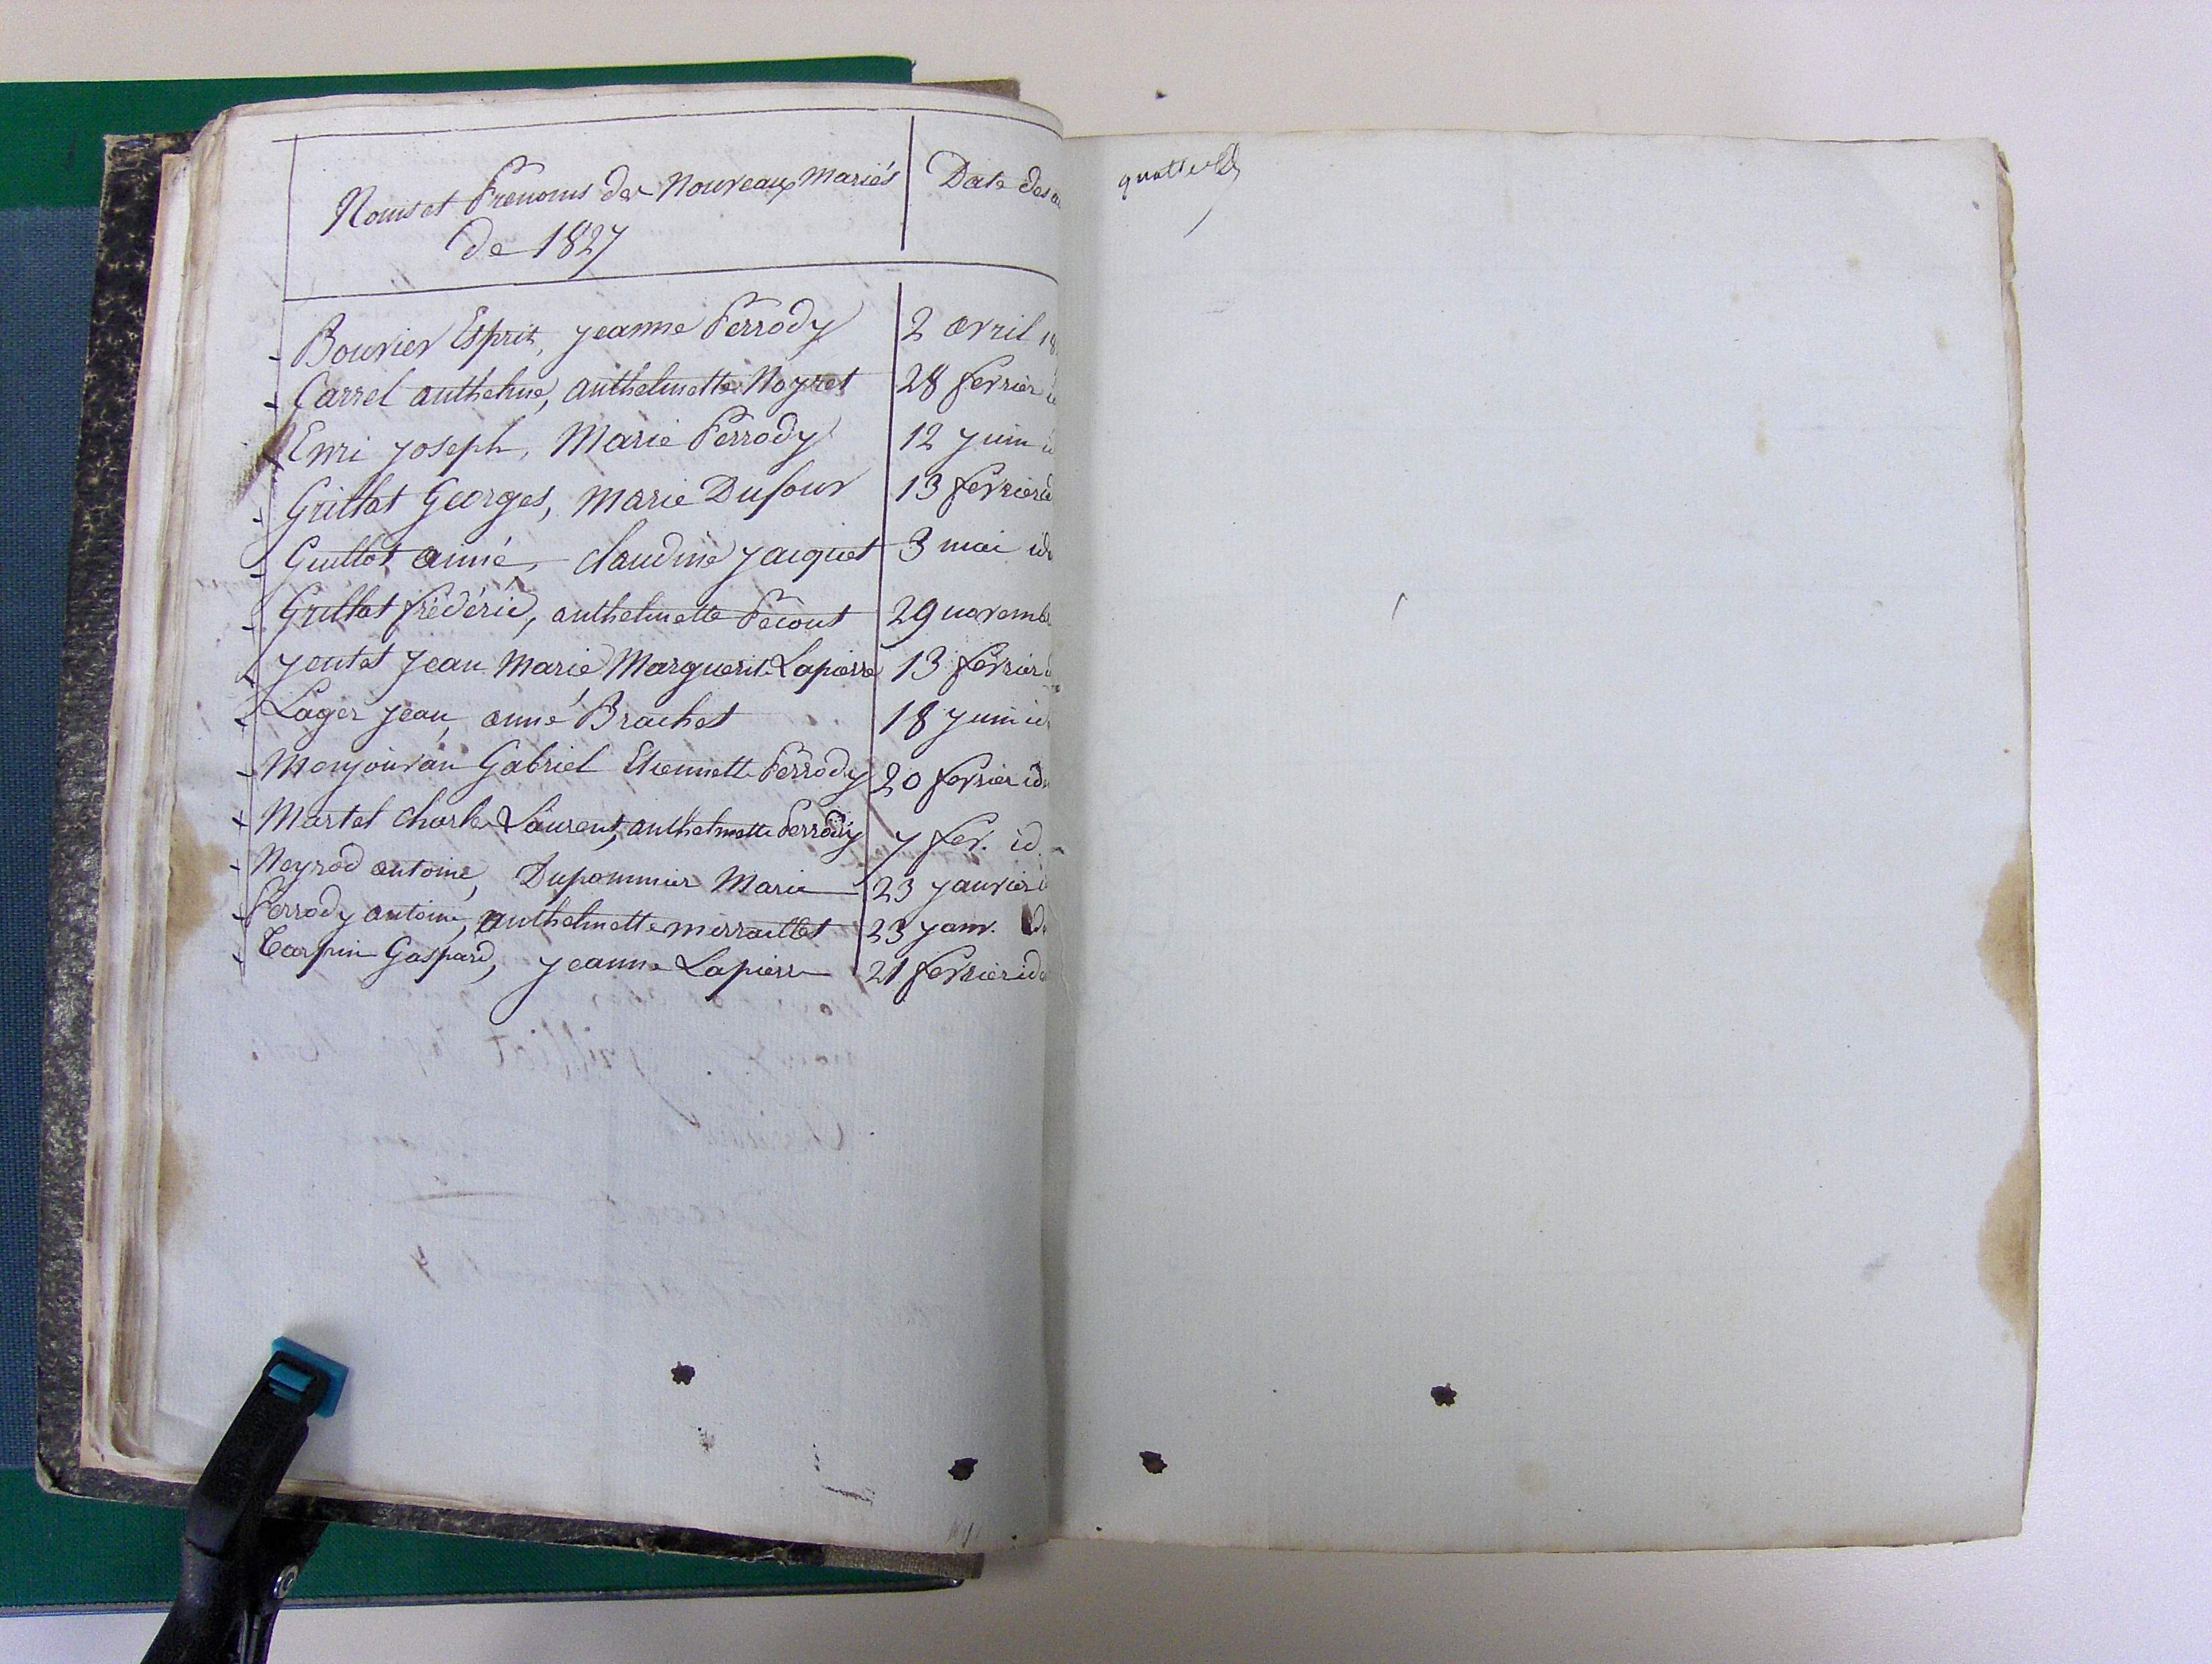 Noms et Prenoms des Nouveaux mariés
de 1827
Date des
Bouvier Esprit, jeanne Perrody 2 avril 18
Carrel anthelme, anthelmette Noyret 28 fevrier
Enri joseph, Marie Perrody 12 juin
Grillat Georges, Marie Dufour 13 fevrier id
Guillot aimé, claudine jacquet 3 mai id
Grillat frédéric, anthelmette Pécout 29 novemb
jentet jean Marie Marguerit Lapierre 13 fevrier
Lager jean, anne Brachet 18 juin id
Monjouvan Gabriel Etiennette Perrody 20 fevrier id
Martel Charle Laurent, anthelmette Perrody 7 fev. id.
Neyrod antoine, Dupommier Marie 23 janvier
Perrody antoine, anthelmette mirraillet 23 janv. id
Carpin Gaspard, jeanne Lapierre 21 fevrier id